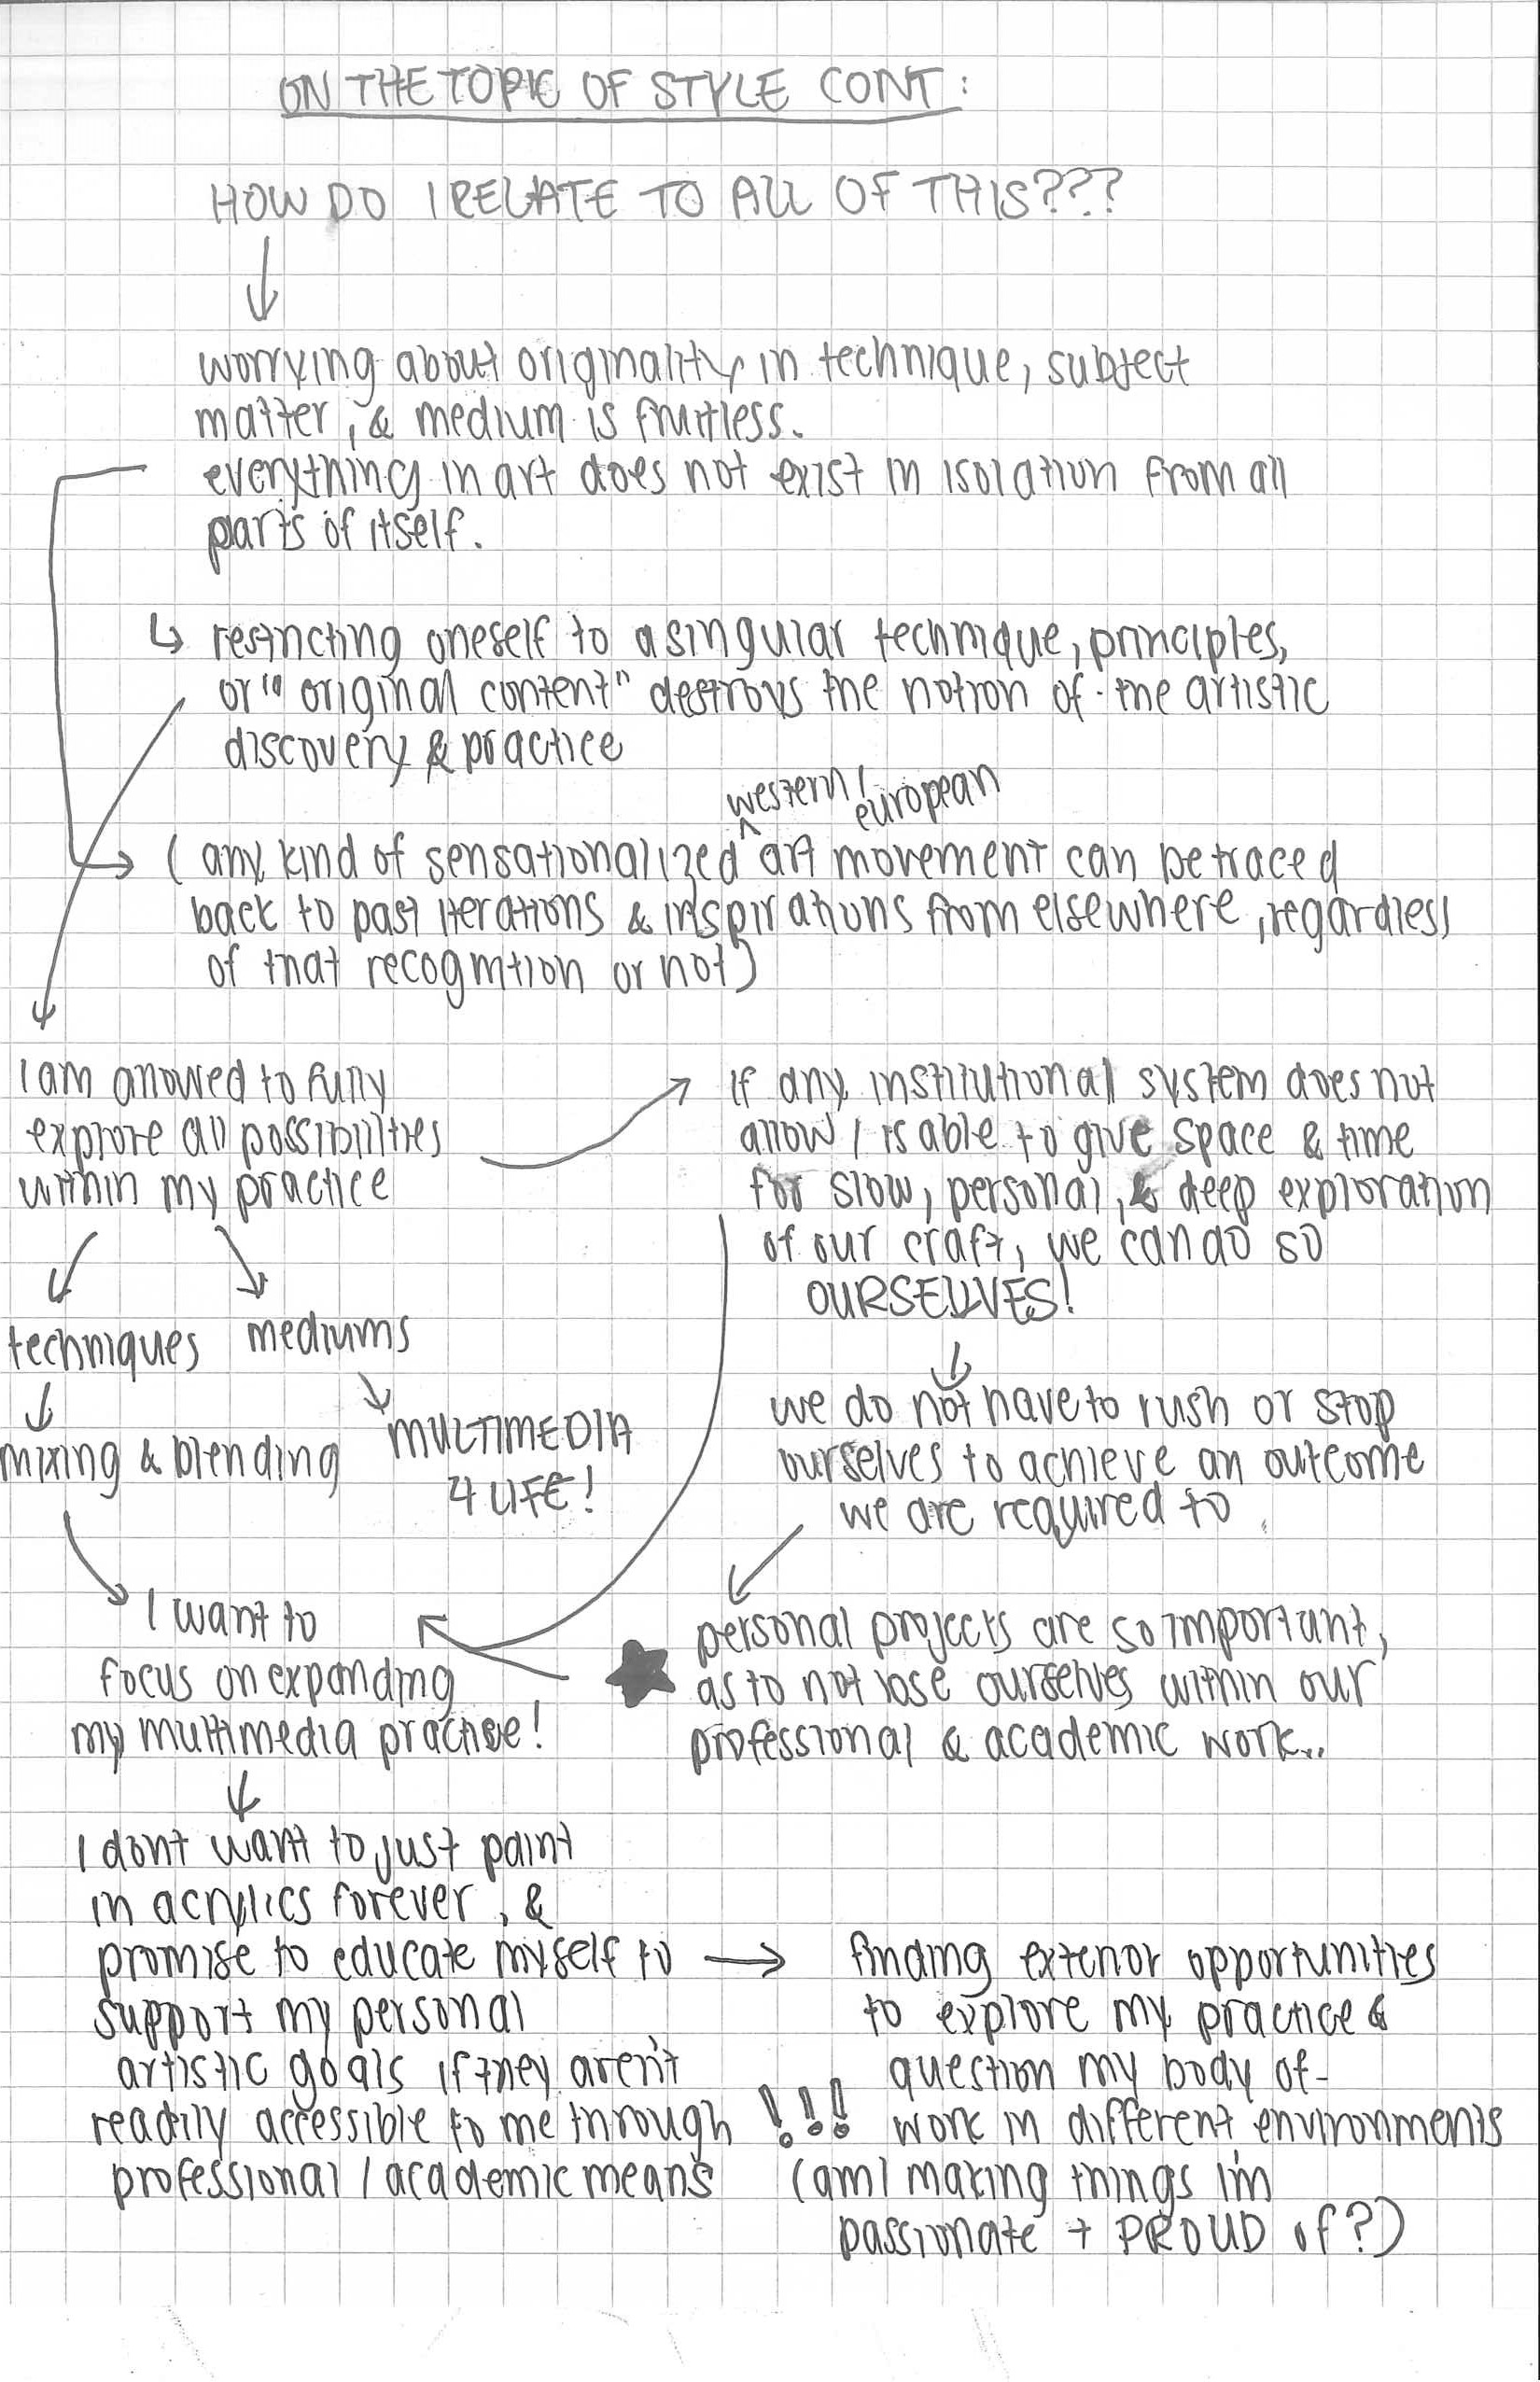 ON THE TOPIC OF STYLE CONT:
HOW DO I RELATE TO ALL OF THIS???
worrying about originality in technique, subject
matter, & medium is fruitless.
everything in art does not exist in isolation from all
parts of itself.
restricting oneself to a singular technique, principles,
or "original content" destroys the notion of the artistic
discovery & practice
western/
european
(any kind of sensationalized art movement can be traced
back to past iterations & inspirations from elsewhere, regardless
of that recognition or not)
I am allowed to fully
explore all possibilities
within my practice
if any institutional system does not
allow / is able to give space & time
for slow, personal, & deep exploration
of our craft, we can do so
OURSELVES!
techniques
mediums
mixing & blending
MULTIMEDIA
4 LIFE!
we do not have to rush or stop
ourselves to achieve an outcome
we are required to.
I want to
focus on expanding
my multimedia practice!
personal projects are so important,
as to not lose ourselves within our
professional & academic work..
I dont want to just paint
in acrylics forever, &
promise to educate myself to
support my personal
artistic goals if they aren't
readily accessible to me through
professional / academic means
!!!
finding exterior opportunities
to explore my practice &
question my body of
work in different environments
(am I making things im
passionate + PROUD of?)